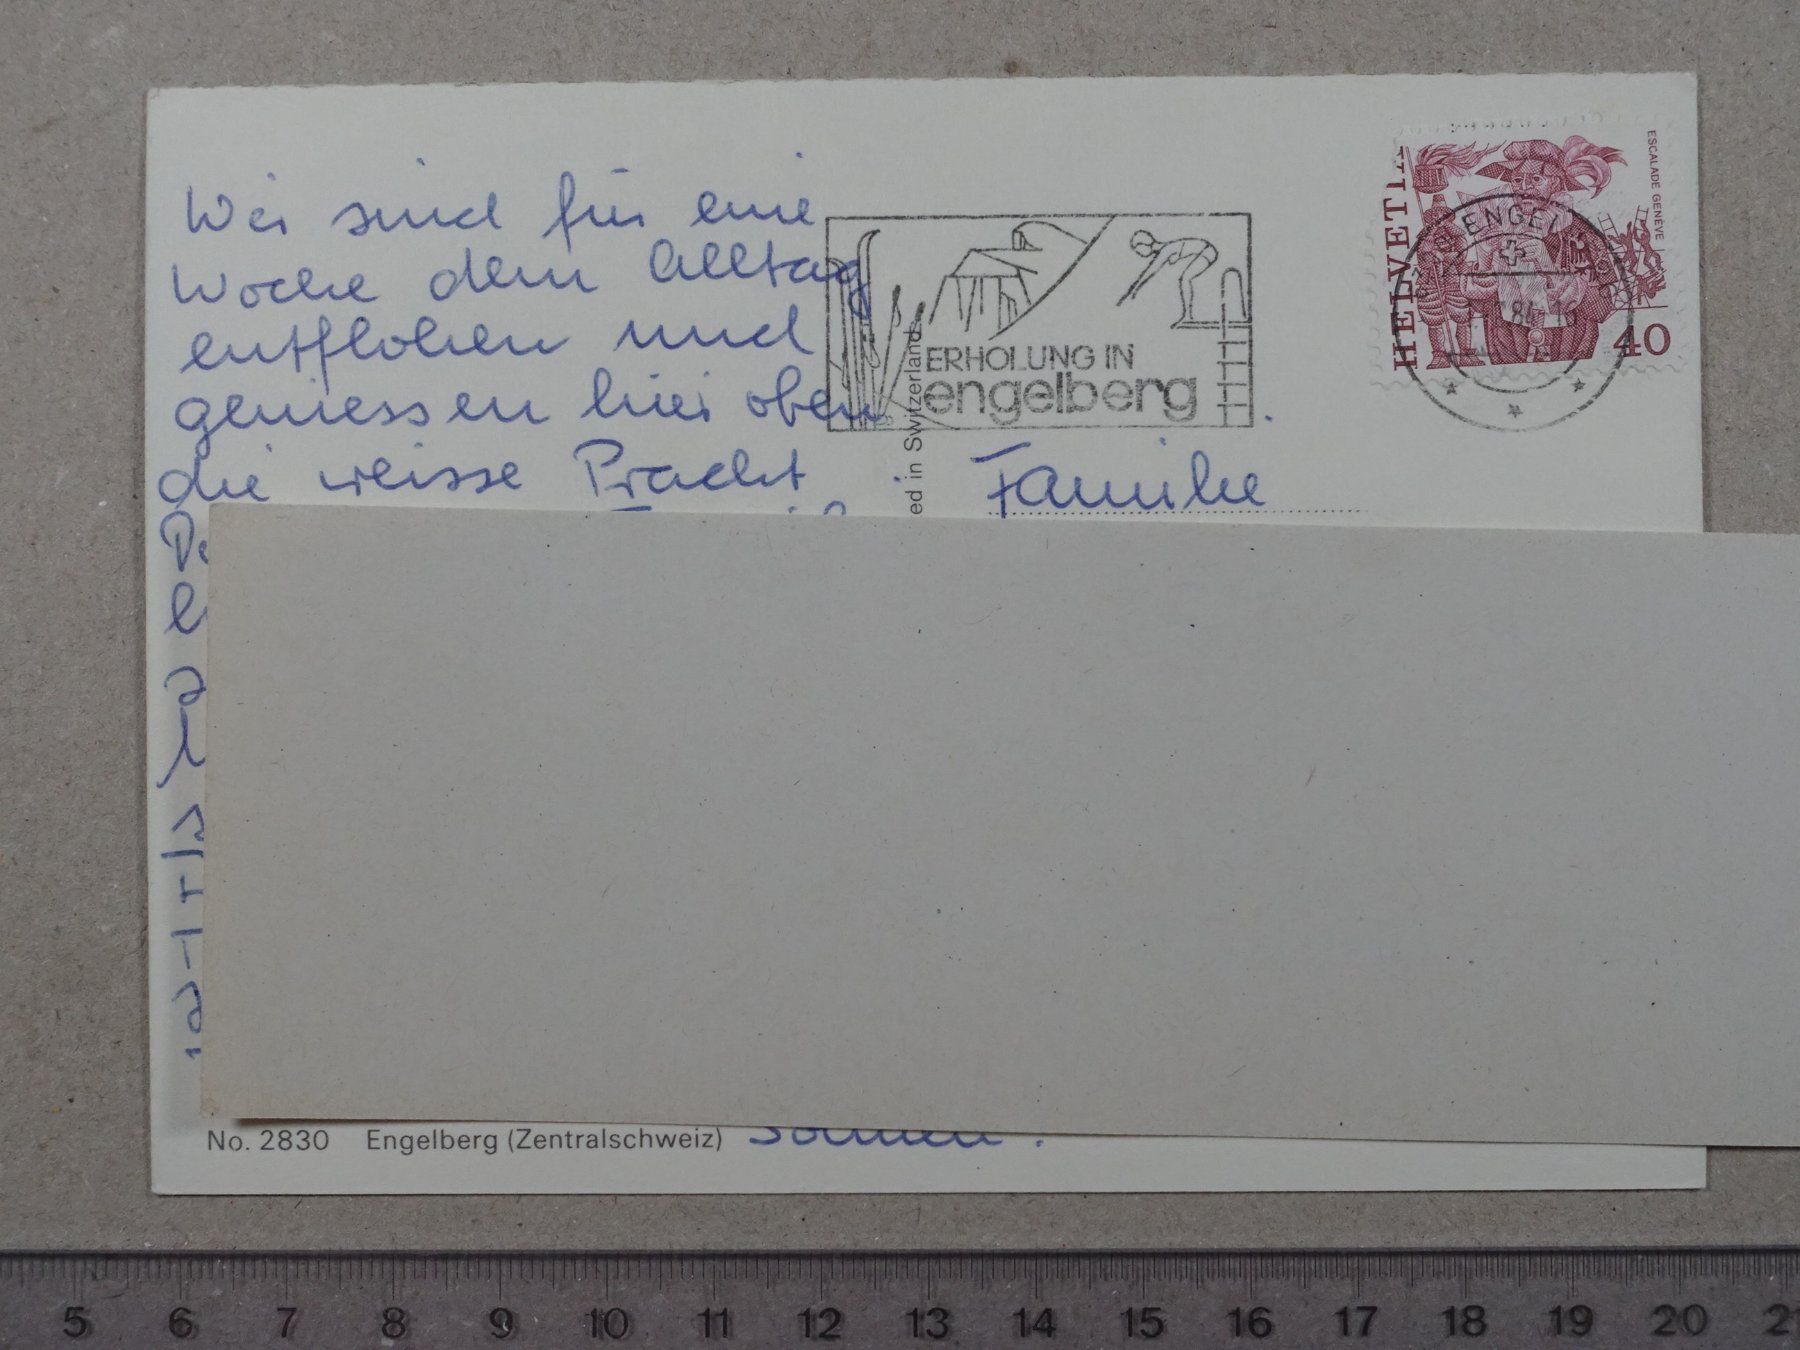 Wir sind für eine
Woche dem Alltag
entflohen und
geniessen hier oben
die weisse Pracht
Familie
ERHOLUNG IN
engelberg
ed in Switzerland
HELVETIA
ESCALADE GENÈVE
40
ENGELBERG
No. 2830 Engelberg (Zentralschweiz)
5 6 7 8 9 10 11 12 13 14 15 16 17 18 19 20 21